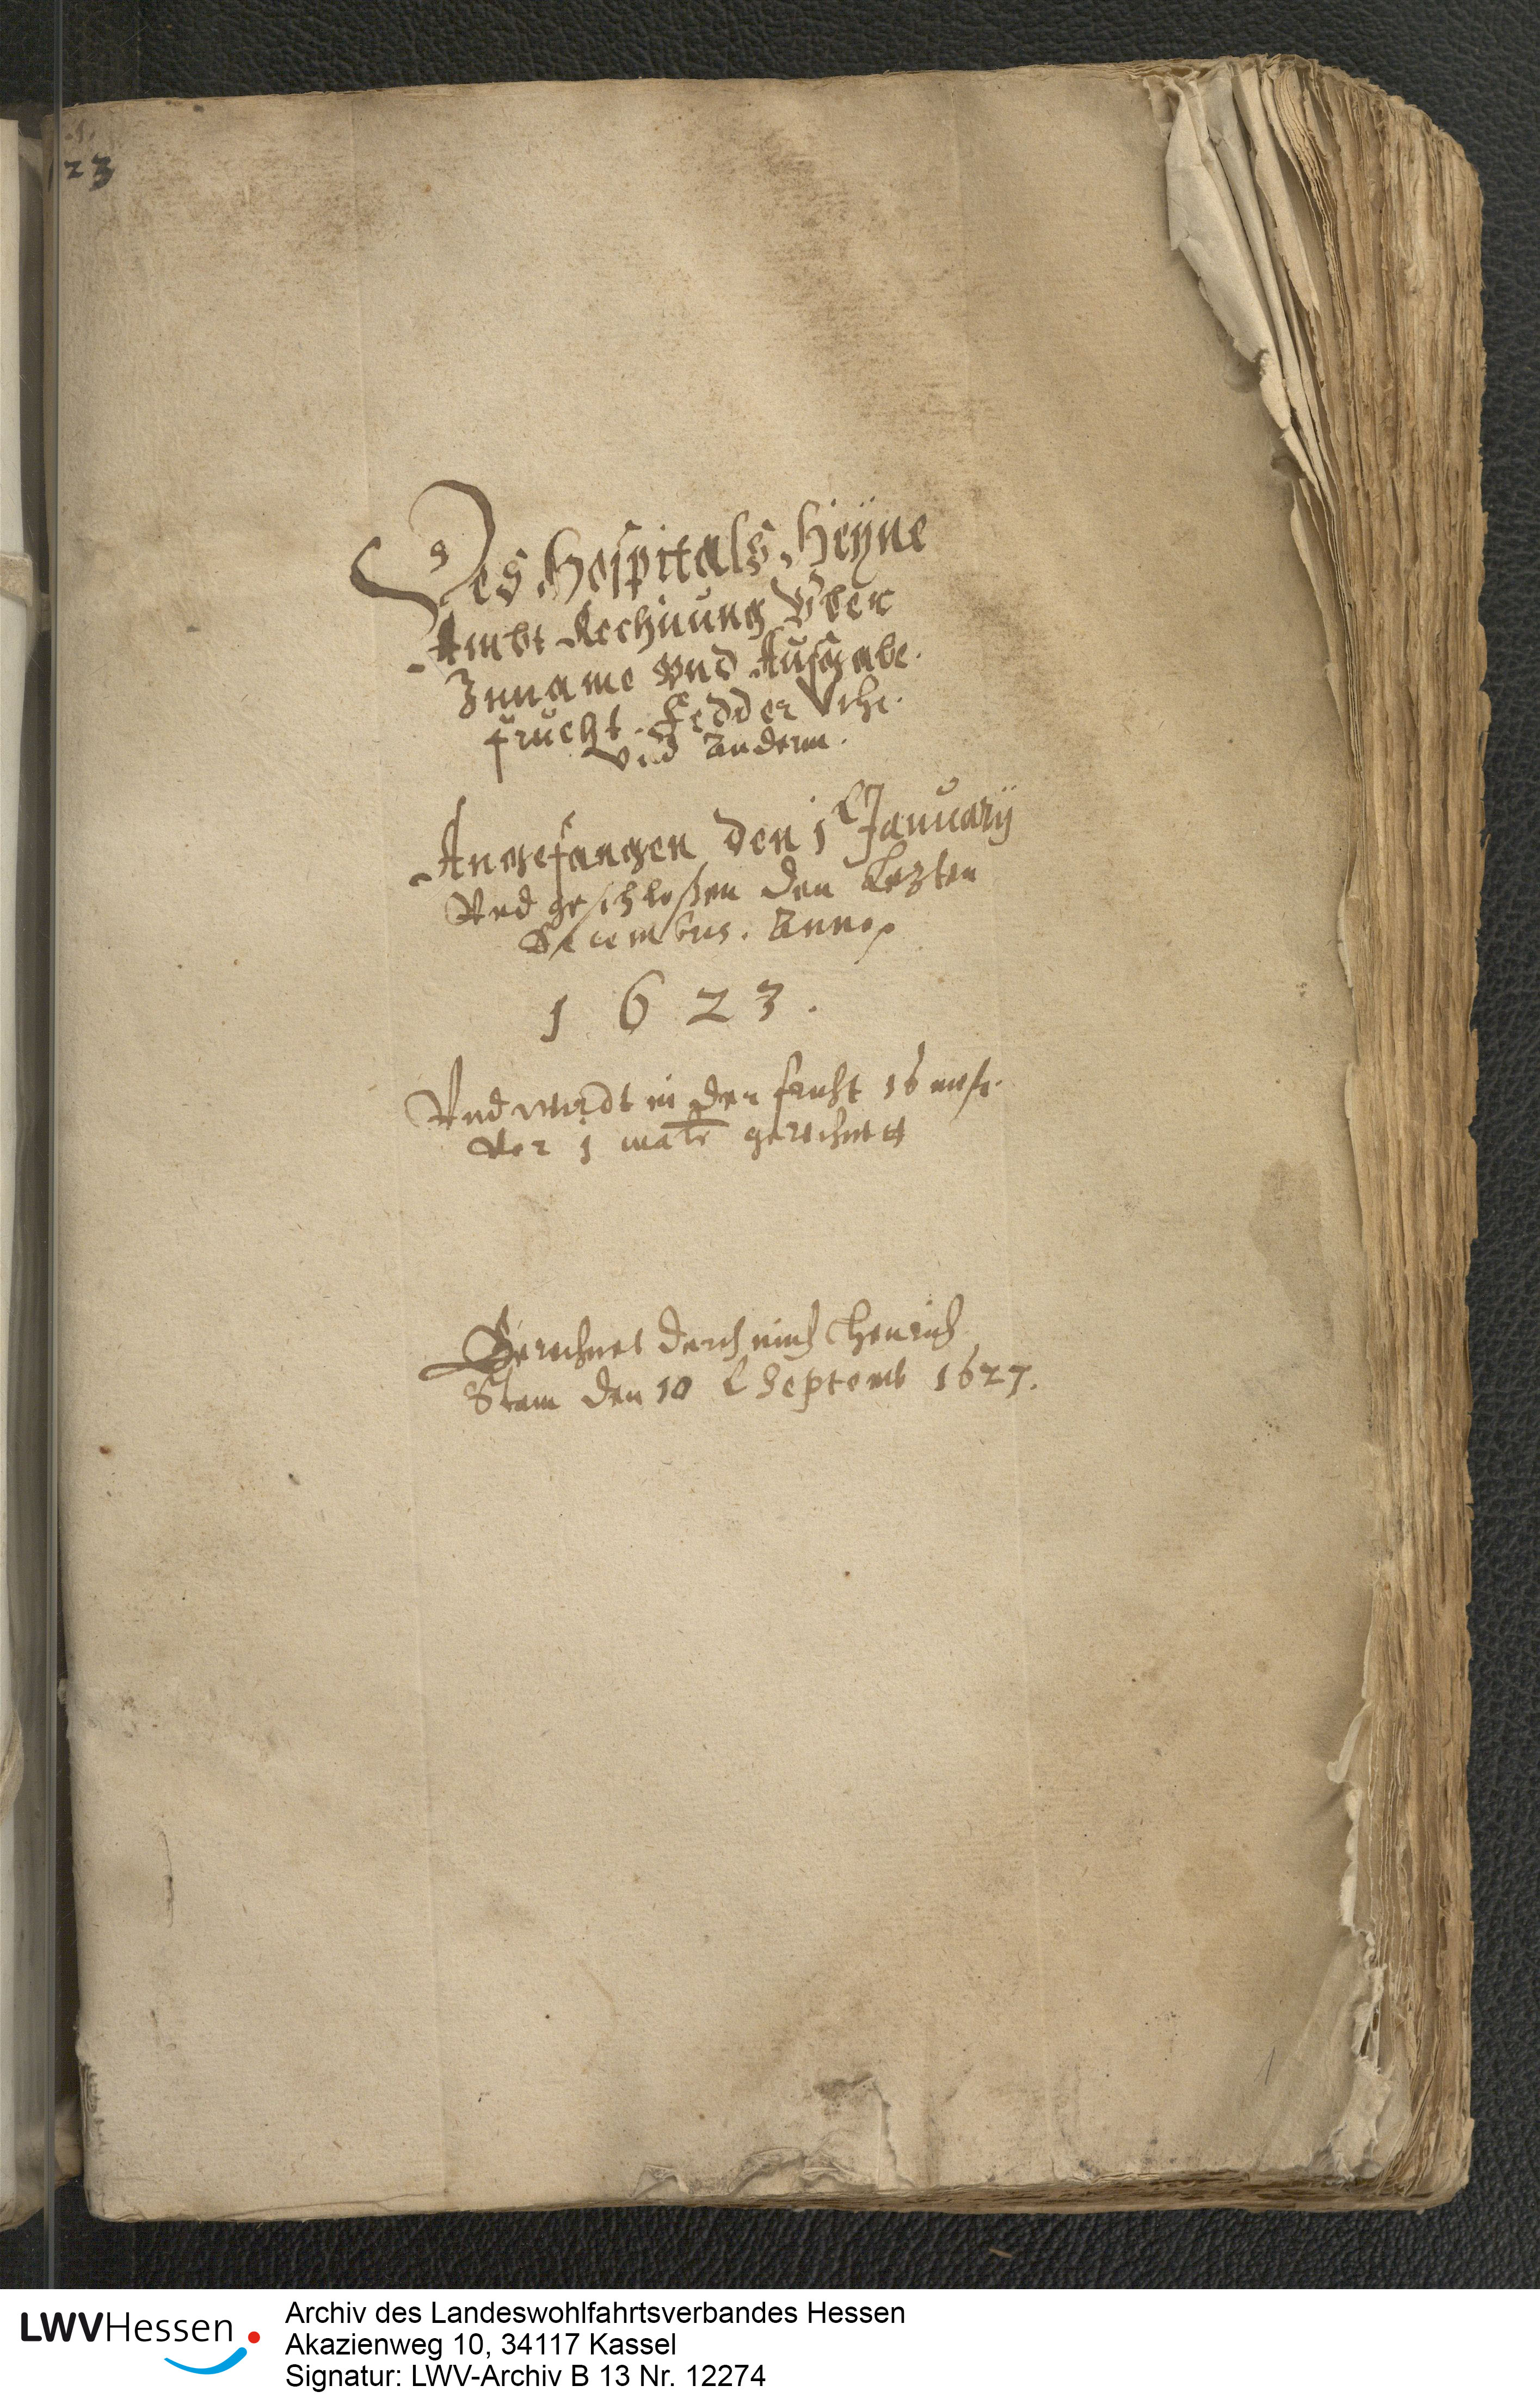 23
Des Hospitals Heÿne
Ambt Rechnung Vber
Inname Vnd Ausgabe.
frucht. Fedder Vihe.
Vnd Anderm.
Angefangen den 1 January
Vnd geschloßen den Lezten
Decembris. Anno
1623.
Vnd wirdt in der frucht 16 mest.
vor 1 maltr gerechnett
Berechnet durch mich Henrich
Stam den 10 Septemb 1627.
LWVHessen
Archiv des Landeswohlfahrtsverbandes Hessen
Akazienweg 10, 34117 Kassel
Signatur: LWV-Archiv B 13 Nr. 12274